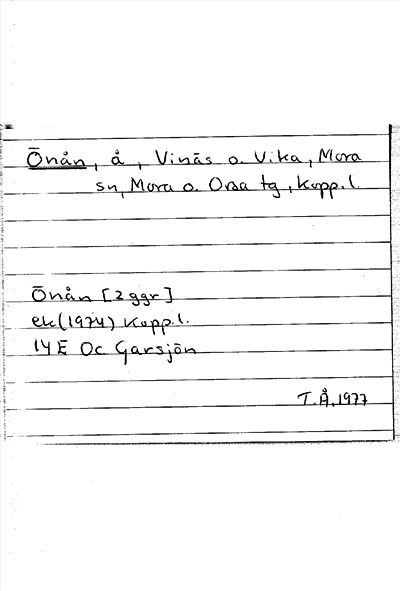 Önån, å, Vinäs o. Vika, Mora
sn, Mora o. Orsa tg, Kopp. l.
Önån [2 ggr]
ek (1974) Kopp. l.
14E Oc Garsjön
T.Å. 1977